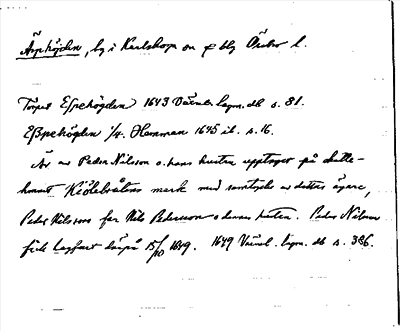 Äsphöjden, by i Karlskoga sn o bg Örebro l.
Torpet Espehögden 1643 Värml. lagm. db s. 81.
Eßpehögden 1/4. Hemman 1645 ib. s. 16.
Är av Peder Nilson o. hans hustru upptaget på skatte-
hemmt Kiölebråtens mark med samtycke av dettes ägare,
Peder Nilssons far Nils Pedersson o dennes hustru. Peder Nilsson
fick lagfart därpå 15/10 1649. 1649 Värml. lagm. db s. 386.